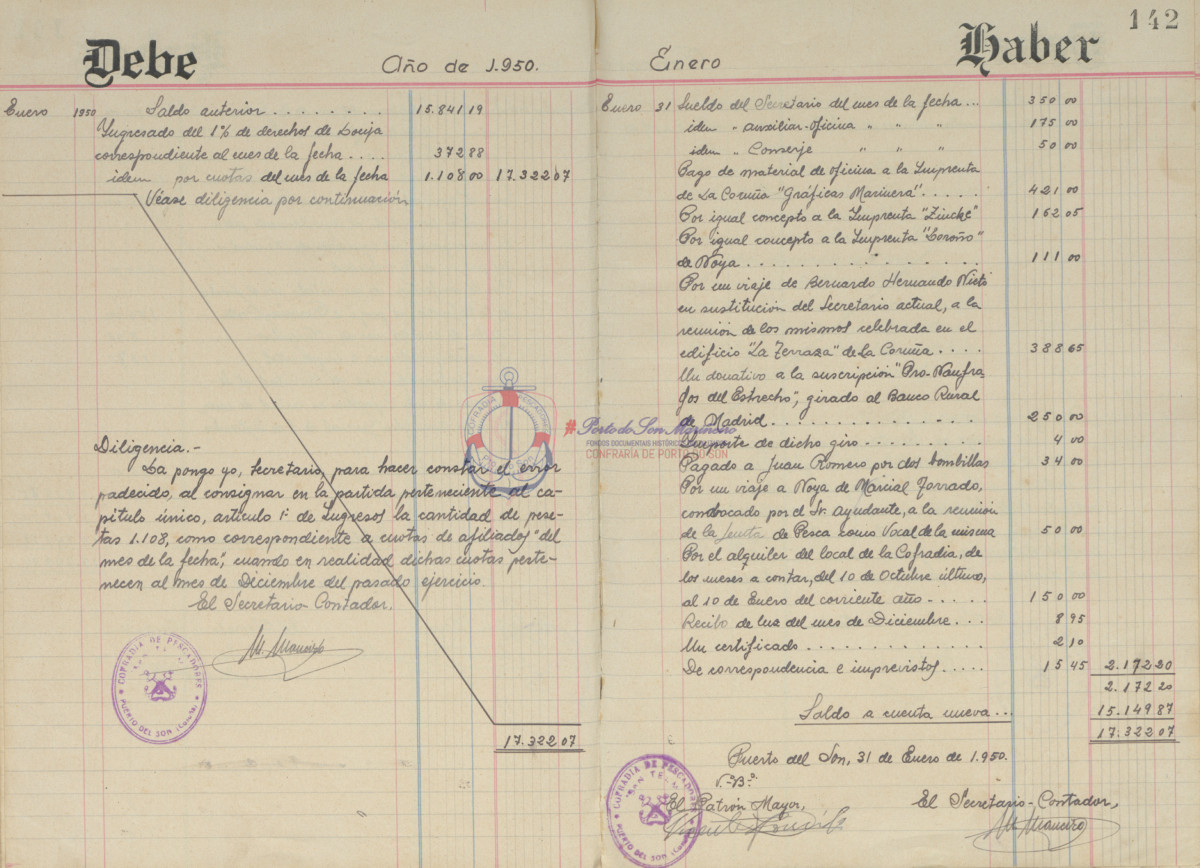 142
Debe
Año de 1.950.
Enero
Haber
Enero 1950 Saldo anterior ........ 15.841 19
Yngresado del 1% de derechos de Lonja
correspondiente al mes de la fecha .... 372 88
idem por cuotas del mes de la fecha 1.108 00 17.322 07
Véase diligencia por continuación
Diligencia.-
La pongo yo, Secretario, para hacer constar el error
padecido, al consignar en la partida perteneciente al ca-
pítulo único, artículo 1º de Yngresos la cantidad de pese-
tas 1.108, como correspondiente a cuotas de afiliados "del
mes de la fecha", cuando en realidad dichas cuotas perte-
necen al mes de Diciembre del pasado ejercicio.
El Secretario Contador,
M. Maneiro
COFRADIA DE PESCADORES
PUERTO DEL SON (Coruña)
17.322 07
Enero 31 Sueldo del Secretario del mes de la fecha ... 350 00
idem " auxiliar-oficina " " " 175 00
idem " Conserje " " " 50 00
Pago de material de oficina a la Ymprenta
de La Coruña "Gráficas Marinera" ..... 421 00
Por igual concepto a la Ymprenta "Zincke" 162 05
Por igual concepto a la Ymprenta "Loroño"
de Noya .............. 111 00
Por un viaje de Bernardo Hernando Nieto
en sustitución del Secretario actual, a la
reunión de los mismos celebrada en el
edificio "La Terraza" de La Coruña .... 388 65
Un donativo a la suscripción "Pro-Naufra-
fos del Estrecho", girado al Banco Rural
de Madrid ............. 250 00
Ymporte de dicho giro .......... 4 00
Pagado a Juan Romero por dos bombillas 34 00
Por un viaje a Noya de Marcial Torrado,
combocado por el Sr. Ayudante, a la reunión
de la Junta de Pesca como Vocal de la misma 50 00
Por el alquiler del local de la Cofradia, de
los meses a contar, del 10 de Octubre último,
al 10 de Enero del corriente año - ..... 150 00
Recibo de luz del mes de Diciembre ... 8 95
Un certificado ............ 2 10
De correspondencia e imprevistos ..... 15 45 2.172 20
2.172 20
Saldo a cuenta nueva ... 15.149 87
17.322 07
Puerto del Son, 31 de Enero de 1.950.
V.ºB.º
El Patrón Mayor,
El Secretario-Contador,
M. Maneiro
COFRADIA DE PESCADORES
SAN TELMO
PUERTO DEL SON
#Porto do Son Mariñeiro
FONDOS DOCUMENTAIS HISTÓRICOS
CONFRARÍA DE PORTO DO SON